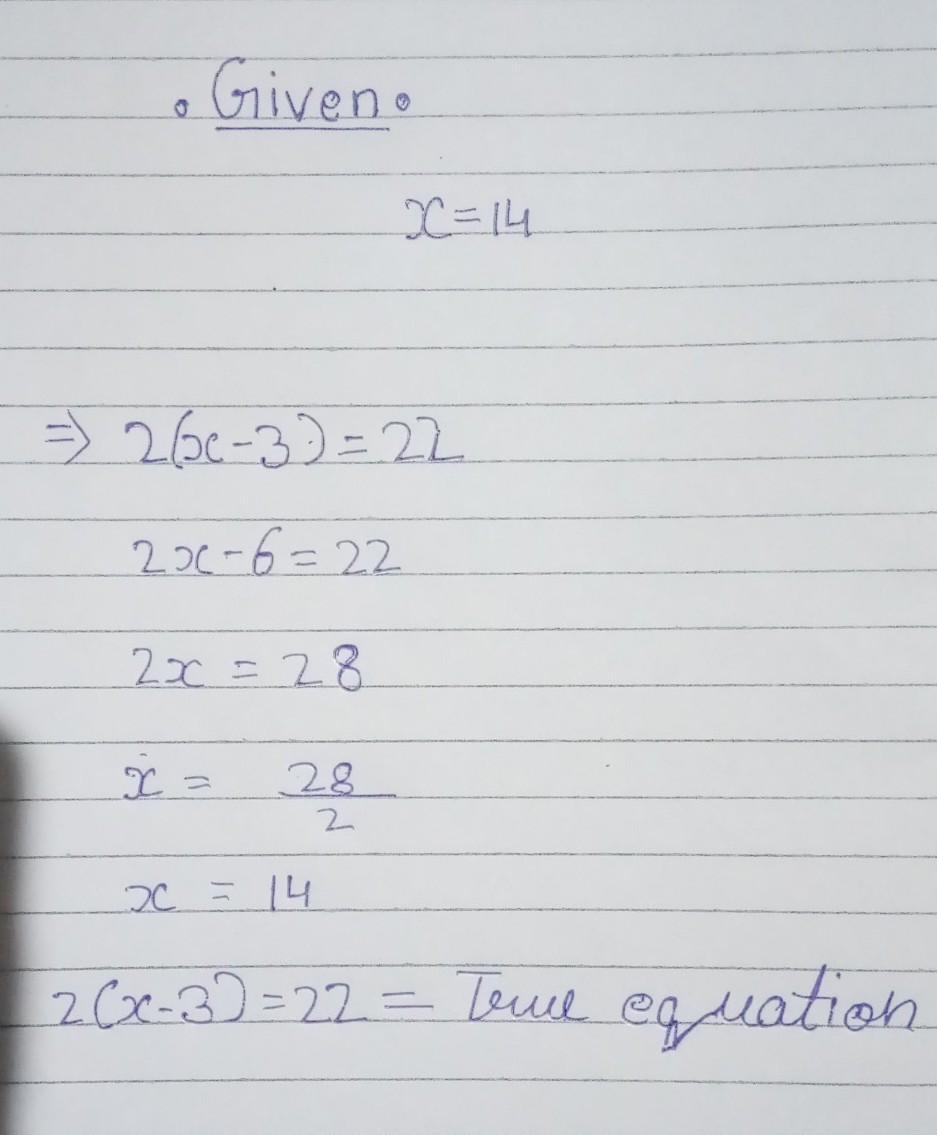 • Given •
x=14
⇒ 2(x-3)=22
2x-6=22
2x = 28
x = 28/2
x = 14
2(x-3)=22 = True equation